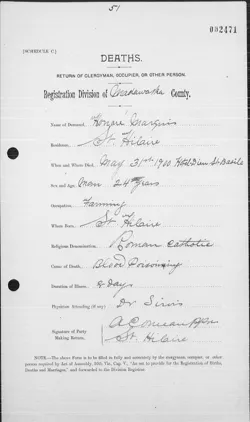 51
002471
[SCHEDULE C.]
DEATHS.
RETURN OF CLERGYMAN, OCCUPIER, OR OTHER PERSON.
Registration Division of Madawaska County.
Name of Deceased, Honoré Marquis
Residence, St. Hilaire
When and Where Died, May 31st 1900 Hotel Dieu St Basile
Sex and Age, Man 24 Years
Occupation, Farming
Where Born, St. Hilaire
Religious Denomination, Roman Catholic
Cause of Death, Blood Poisoning
Duration of Illness, Days
Physician Attending (if any) Dr
Signature of Party
Making Return, St. Hilaire
NOTE.—The above Form is to be filled in fully and accurately by the clergyman, occupier, or other
person required by Act of Assembly, 50th Vic., Cap. V., "An Act to provide for the Registration of Births,
Deaths and Marriages," and forwarded to the Division Registrar.